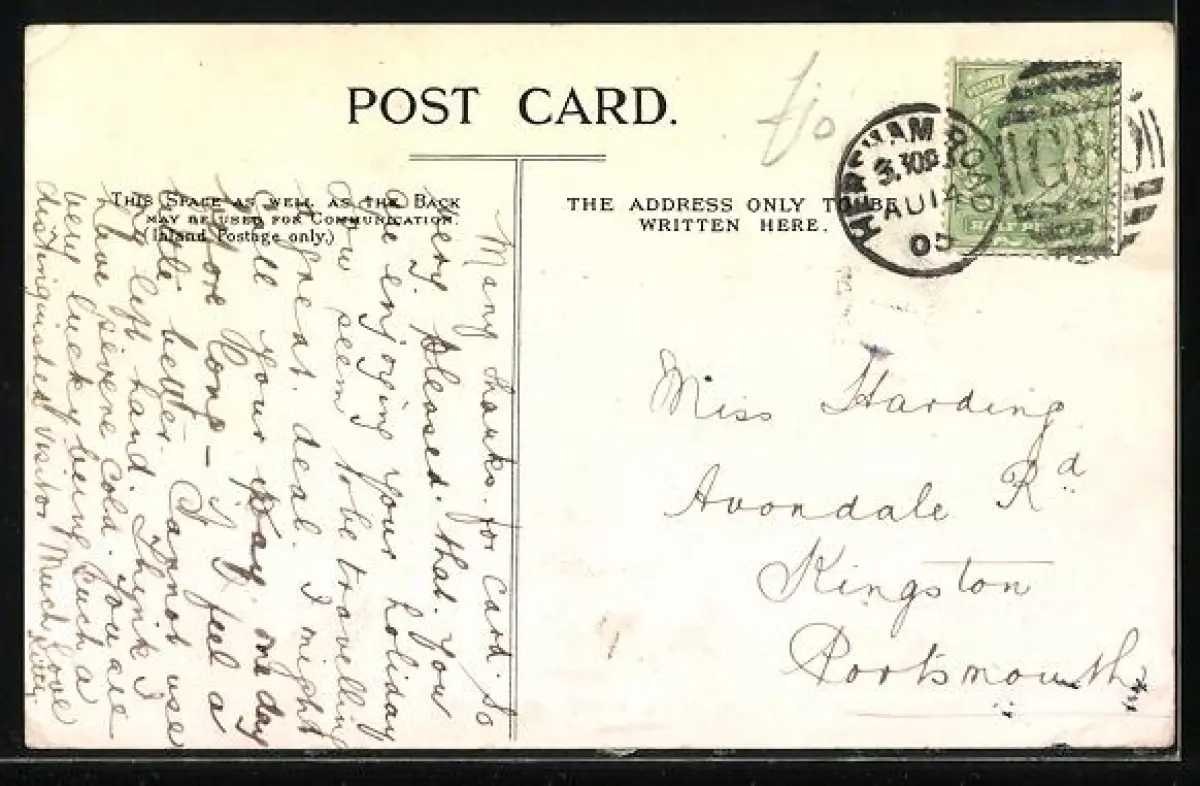 POST CARD.
THIS SPACE AS WELL AS THE BACK
MAY BE USED FOR COMMUNICATION.
(Inland Postage only.)
THE ADDRESS ONLY TO BE
WRITTEN HERE.
HORSHAM ROAD
3.30PM
AU 14
05
Many thanks for card. So
very pleased that you
are enjoying your holiday
You seem to be travelling
a great deal. I might
call your way one day
before long – I feel a
little better. Cannot use
my left hand. Think I
have severe cold. You are
very lucky being such a
distinguished visitor Much Love
Miss Harding
Avondale Rd
Kingston
Portsmouth